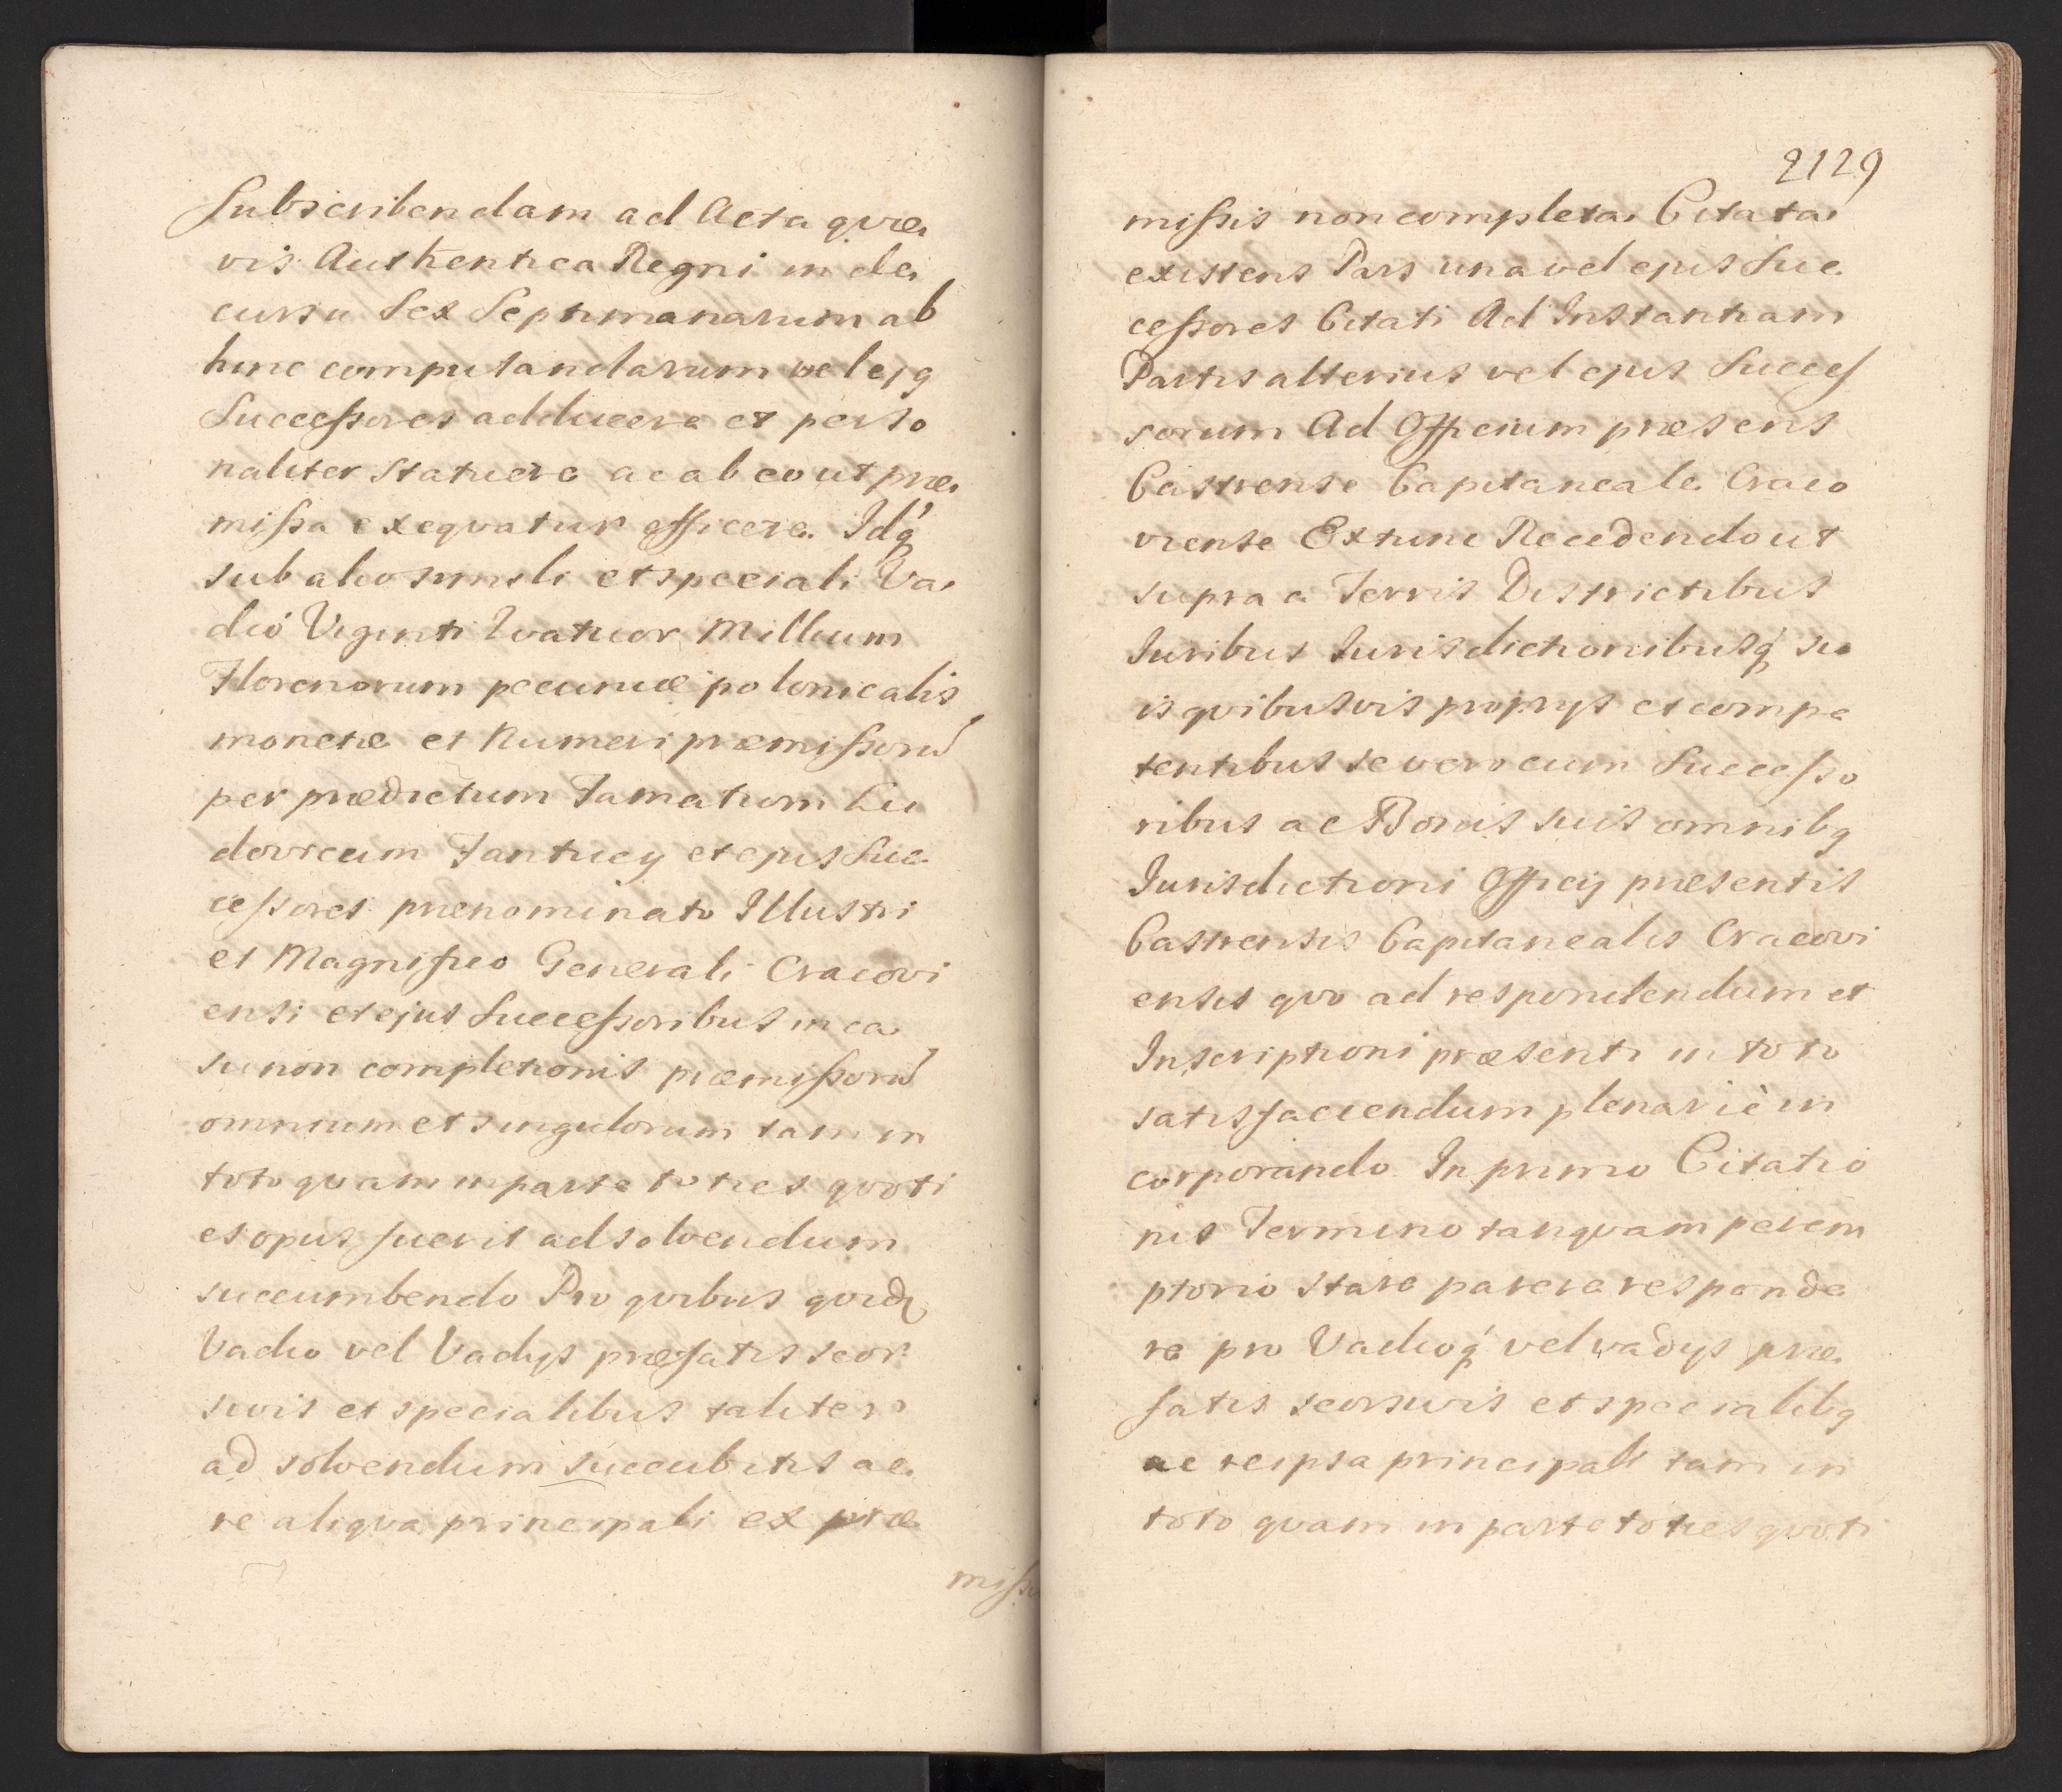 Subscribendam ad Acta quæ
vis Authentica Regni in de
cursu Sex Septimanarum ab
hinc computandarum vel ejq
Successores adducere et perso
naliter Statuere ac ab eo ut præ
missa exequatur efficere. Idq́
sub alio simili et speciali Va
dió Viginti Quatuor Millium
Florenorum pecuniæ polonicalis
monetæ et Numeri præmissorū
per prædictum Famatum Lu
dovicum Fantucy et ejus Suc
cessores prænominato Illustri
et Magnifico Generali Cracovi
ensi et ejus Successoribus in ca
su non completionis præmissorū
omnium et singulorum tam in
toto quam in parte toties quoti
es opus fuerit ad solvendum
succumbendo Pro quibus quidē
Vadio vel Vadys præfatis seor
sivis et specialibus taliter
ad solvendum succubitis ac
re aliqua principali ex præ
missis
2129
missis non completa Citata
existens Pars una vel ejus Suc
cessores Citati Ad Instantiam
Partis alterius vel ejus Succes
sorum Ad Officium præsens
Castrense Capitaneale Craco
viense Extunc Recedendo ut
supra a Terris Districtibus
Iuribus Iurisdictionibusq́ su
is quibusvis proprys et compe
tentibus se vero cum Successo
ribus ac Bonis suis omnibq
Iurisdictioni Officij præsentis
Castrensis Capitanealis Cracovi
ensis quo ad respondendum et
Inscriptioni præsenti in toto
satisfaciendum plenariè in
corporando In primo Citatio
nis Termino tanquam perem
ptorio Stare parere responde
re pro Vadioq́ vel vadys præ
fatis seorsivis et specialibq
ac re ipsa principali tam in
toto quam in parte toties quoti